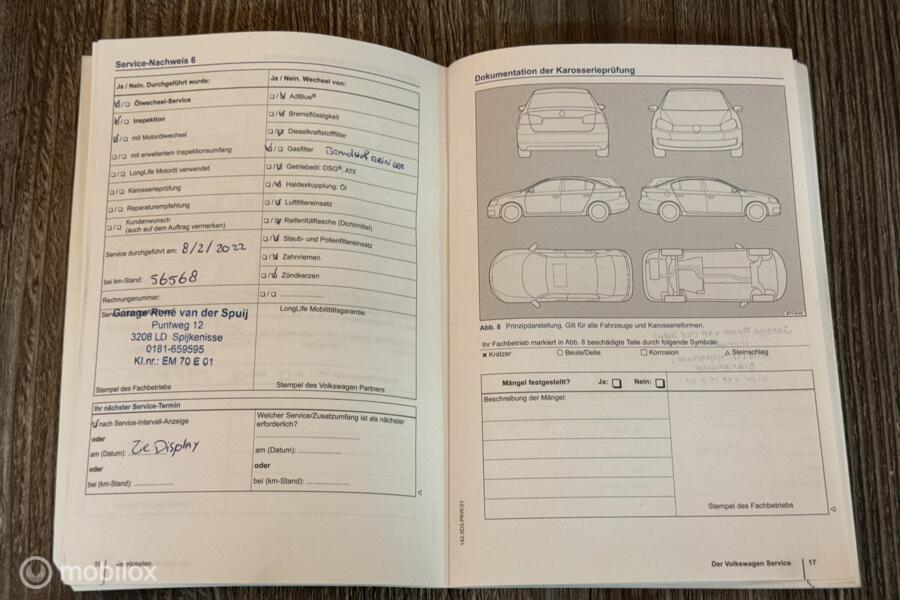 Service-Nachweis 6
Ja / Nein. Durchgeführt wurde:
☑/☐ Ölwechsel-Service
☑/☐ Inspektion
☑/☐ mit Motorölwechsel
☐/☐ mit erweitertem Inspektionsumfang
☐/☐ LongLife Motoröl verwendet
☐/☐ Karosserieprüfung
☐/☐ Reparaturempfehlung
☐/☐ Kundenwunsch
(auch auf dem Auftrag vermerken)
Service durchgeführt am: 8/2/2022
bei km-Stand: 56568
Rechnungsnummer:
Garage René van der Spuij
Puntweg 12
3208 LD Spijkenisse
0181-659595
Kl.nr.: EM 70 E 01
Stempel des Fachbetriebs
Ja / Nein. Wechsel von:
☐/☑ AdBlue®
☐/☑ Bremsflüssigkeit
☐/☑ Dieselkraftstofffilter
☑/☐ Gasfilter Brandstof reiniger
☐/☑ Getriebeöl: DSG®, ATF
☐/☑ Haldexkupplung: Öl
☐/☑ Luftfiltereinsatz
☐/☑ Reifenfüllflasche (Dichtmittel)
☐/☑ Staub- und Pollenfiltereinsatz
☐/☑ Zahnriemen
☐/☑ Zündkerzen
☐/☐ ....................
LongLife Mobilitätsgarantie:
Stempel des Volkswagen Partners
Ihr nächster Service-Termin
☑ nach Service-Intervall-Anzeige
oder
am (Datum): Zie Display
oder
bei (km-Stand): ............
Welcher Service/Zusatzumfang ist als nächster
erforderlich?
am (Datum): ............
oder
bei (km-Stand): ............
Serviceplan
Dokumentation der Karosserieprüfung
Abb. 8 Prinzipdarstellung. Gilt für alle Fahrzeuge und Karosserieformen.
Ihr Fachbetrieb markiert in Abb. 8 beschädigte Teile durch folgende Symbole:
✕ Kratzer ○ Beule/Delle ☐ Korrosion △ Steinschlag
Mängel festgestellt? Ja: ☐ Nein: ☐
Beschreibung der Mängel:
Stempel des Fachbetriebs
142.5D3.PKW.01
Der Volkswagen Service 17
mobilox